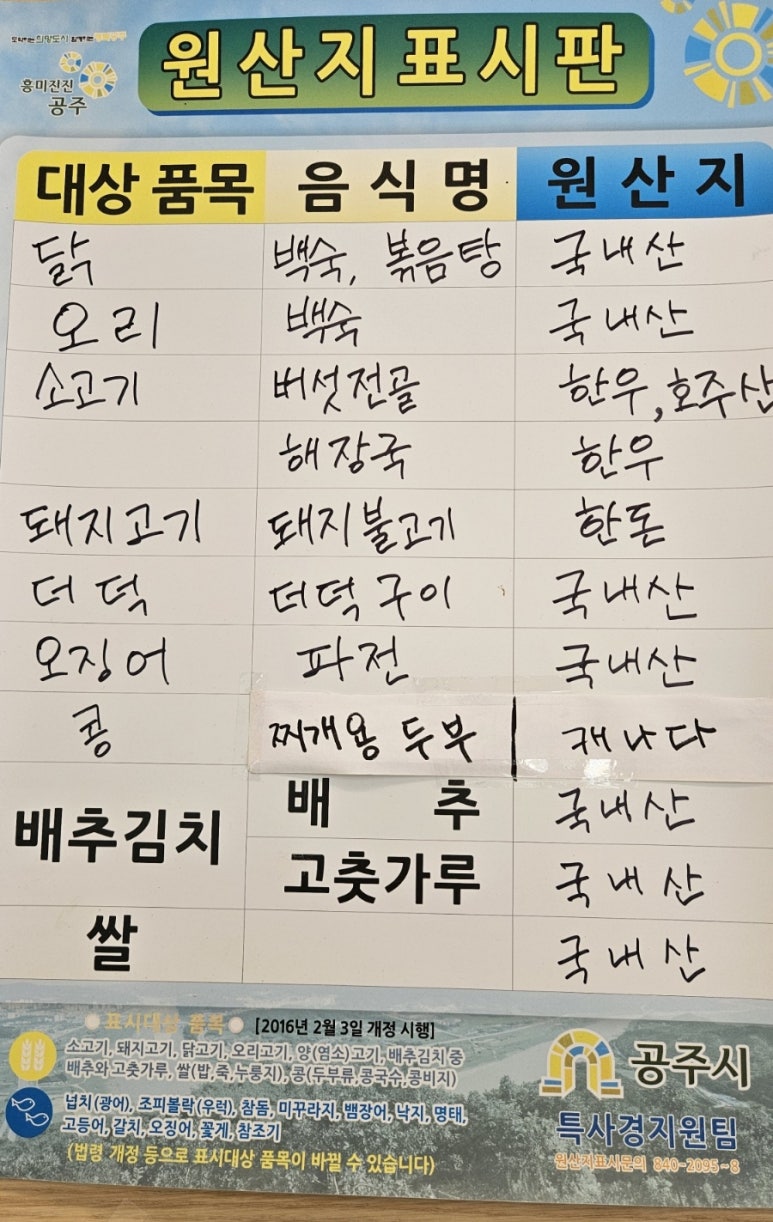 흥미진진
공주
원산지표시판
대상 품목 음식명 원산지
닭 백숙, 볶음탕 국내산
오리 백숙 국내산
소고기 버섯전골 한우, 호주산
해장국 한우
돼지고기 돼지불고기 한돈
더덕 더덕구이 국내산
오징어 파전 국내산
콩 찌개용 두부 캐나다
배추김치 배추 국내산
고춧가루 국내산
쌀 국내산
표시대상 품목 [2016년 2월 3일 개정 시행]
소고기, 돼지고기, 닭고기, 오리고기, 양(염소)고기, 배추김치 중
배추와 고춧가루, 쌀(밥,죽,누룽지), 콩(두부류,콩국수,콩비지)
넙치(광어), 조피볼락(우럭), 참돔, 미꾸라지, 뱀장어, 낙지, 명태,
고등어, 갈치, 오징어, 꽃게, 참조기
(법령 개정 등으로 표시대상 품목이 바뀔 수 있습니다)
공주시
특사경지원팀
원산지표시문의 840-2095~8